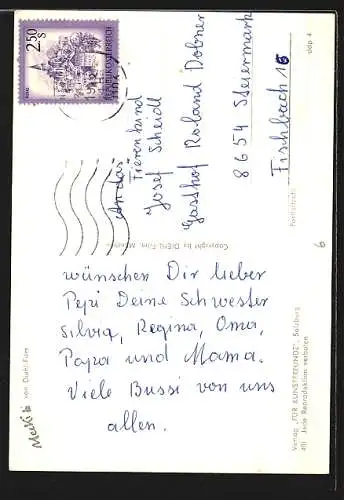 2.50
S
REPUBLIK ÖSTERREICH
An das
Ferienkind
Josef Scheidl
Gasthof Roland Dobner
8654 Steiermark
Fischbach 16
Postleitzahl
odp 4
Copyright by DIEHL-Film, München
6
wünschen Dir lieber
Pepi Deine Schwester
Silvia, Regina, Oma,
Papa und Mama.
Viele Bussi von uns
allen.
Mecki
von Diehl-Film
Verlag „FÜR KUNSTFREUNDE", Salzburg
Jede Reproduktion verboten